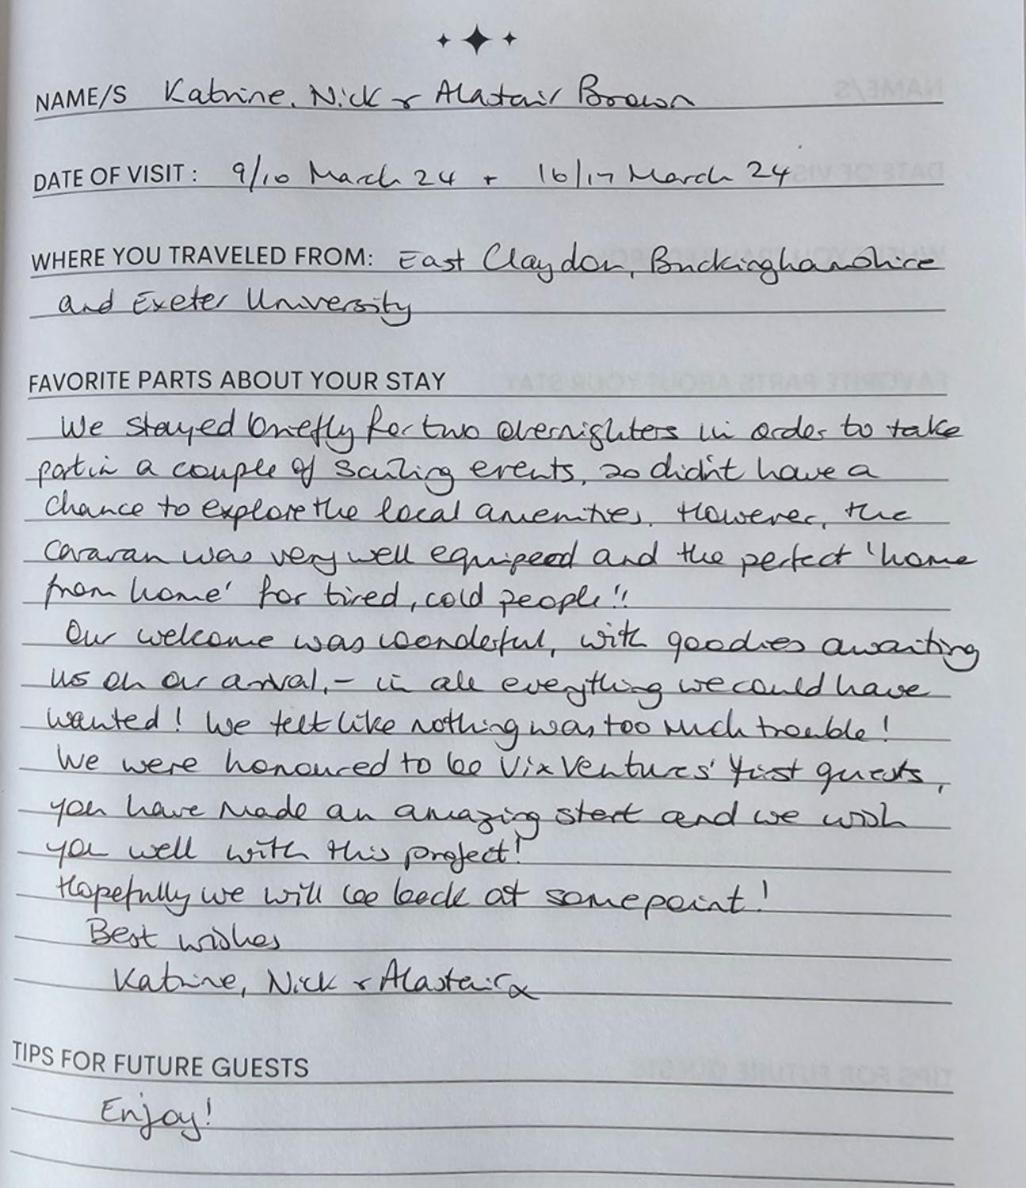 NAME/S Katrine, Nick + Alastair Brown
DATE OF VISIT: 9/10 March 24 + 16/17 March 24
WHERE YOU TRAVELED FROM: East Claydon, Buckinghamshire
and Exeter University
FAVORITE PARTS ABOUT YOUR STAY
We stayed briefly for two overnighters in order to take
part in a couple of sailing events, so didn't have a
chance to explore the local amenities. However, the
caravan was very well equipped and the perfect 'home
from home' for tired, cold people!!
Our welcome was wonderful, with goodies awaiting
us on our arrival, - in all everything we could have
wanted! We felt like nothing was too much trouble!
We were honoured to be VixVentures' first guests,
you have made an amazing start and we wish
you well with this project!
Hopefully we will be back at some point!
Best wishes
Katrine, Nick + Alastair x
TIPS FOR FUTURE GUESTS
Enjoy!